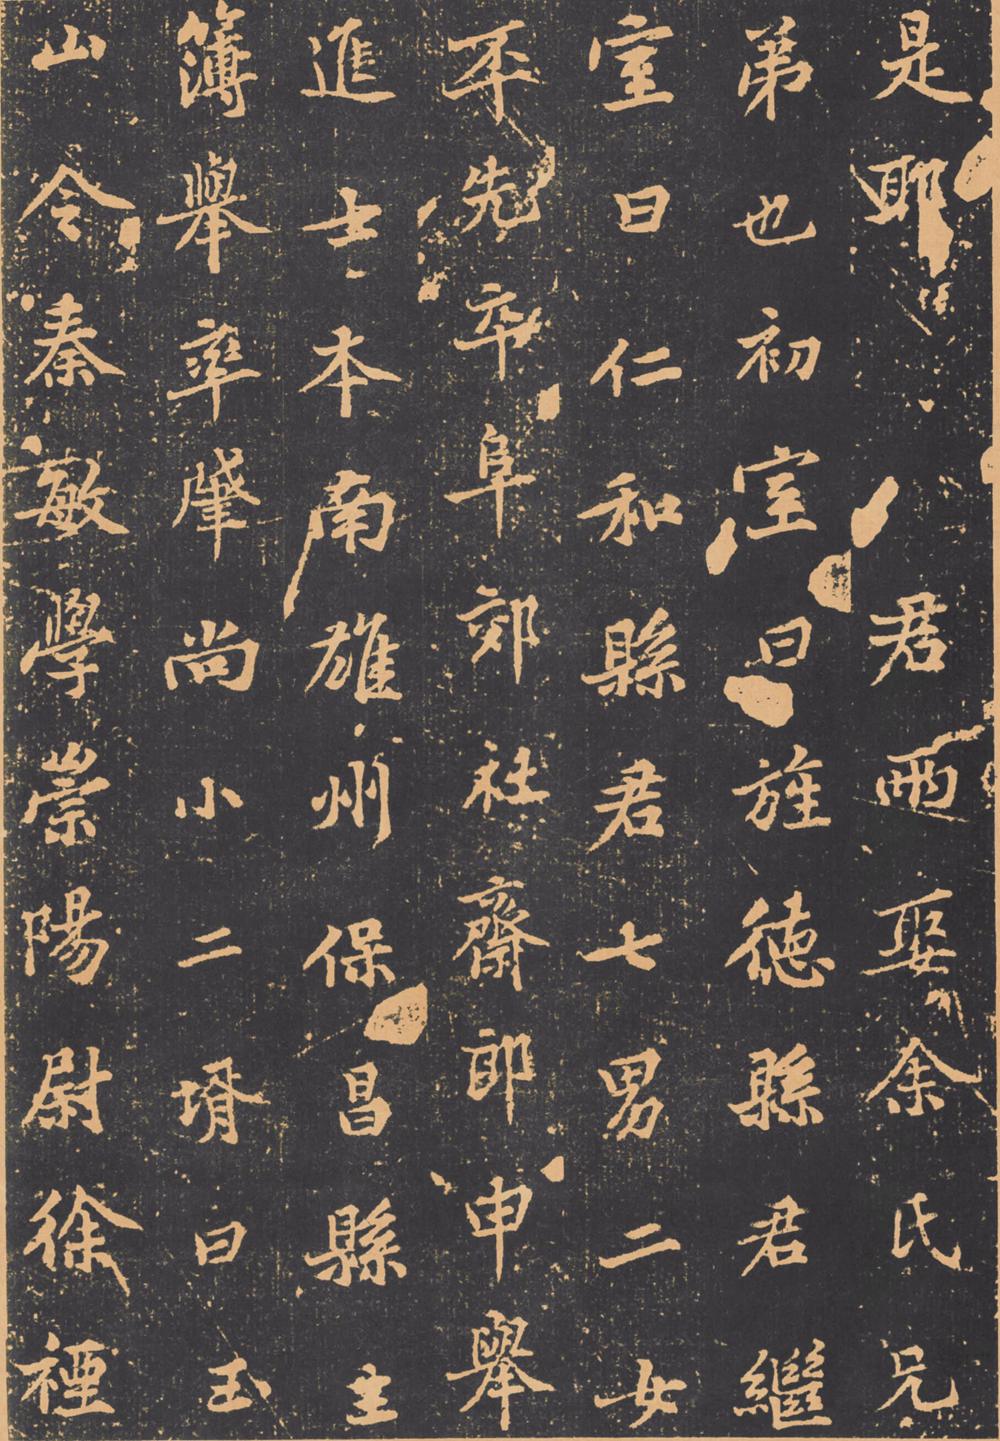 是耶　君兩娶余氏兄
弟也初室曰旌德縣君繼
室曰仁和縣君七男二女
丕先卒阜郊社齋郎申舉
進士本南雄州保昌縣主
簿舉率肇尚小二壻曰玉
山令秦敏學崇陽尉徐禋